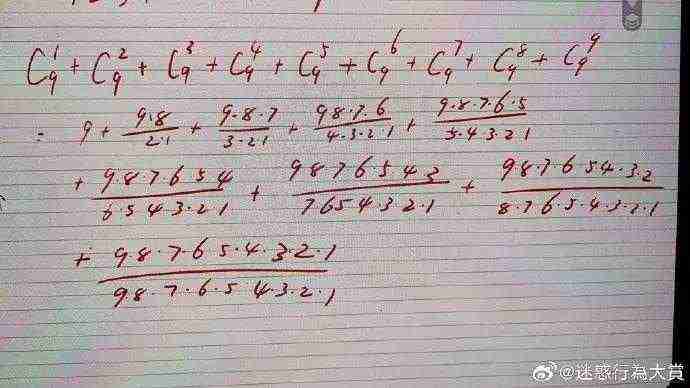 C₉¹ + C₉² + C₉³ + C₉⁴ + C₉⁵ + C₉⁶ + C₉⁷ + C₉⁸ + C₉⁹
= 9 + 9·8/2·1 + 9·8·7/3·2·1 + 9 8·7·6/4·3·2·1 + 9·8·7·6·5/5·4·3·2·1
+ 9·8·7·6 5 4/6·5 4 3·2·1 + 9 8 7 6 5 4 3/7 6 5 4·3·2·1 + 9 8·7·6·5 4·3·2/8·7·6·5·4·3·2·1
+ 9·8·7·6 5·4·3·2·1/9 8·7·6·5 4·3·2·1
@迷惑行為大賞